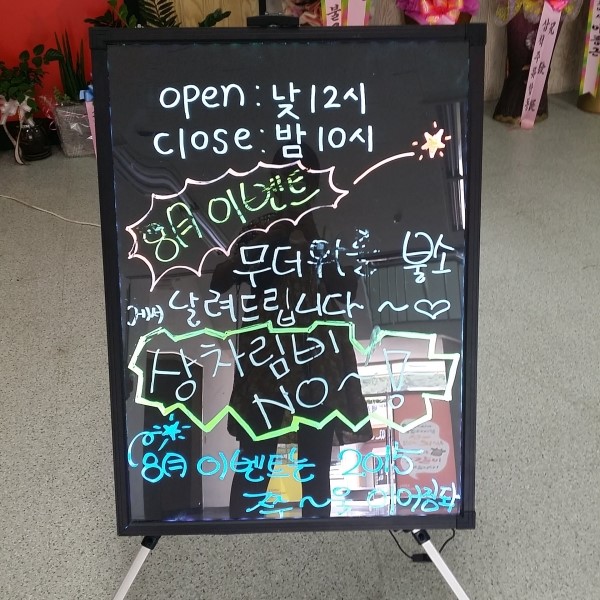 open : 낮 12시
close : 밤 10시
8月 이벤트
무더위를 불소
에서 날려드립니다 ~ ♡
상차림비
NO~
8月 이벤트는 2015
쭈~욱 이어집니다